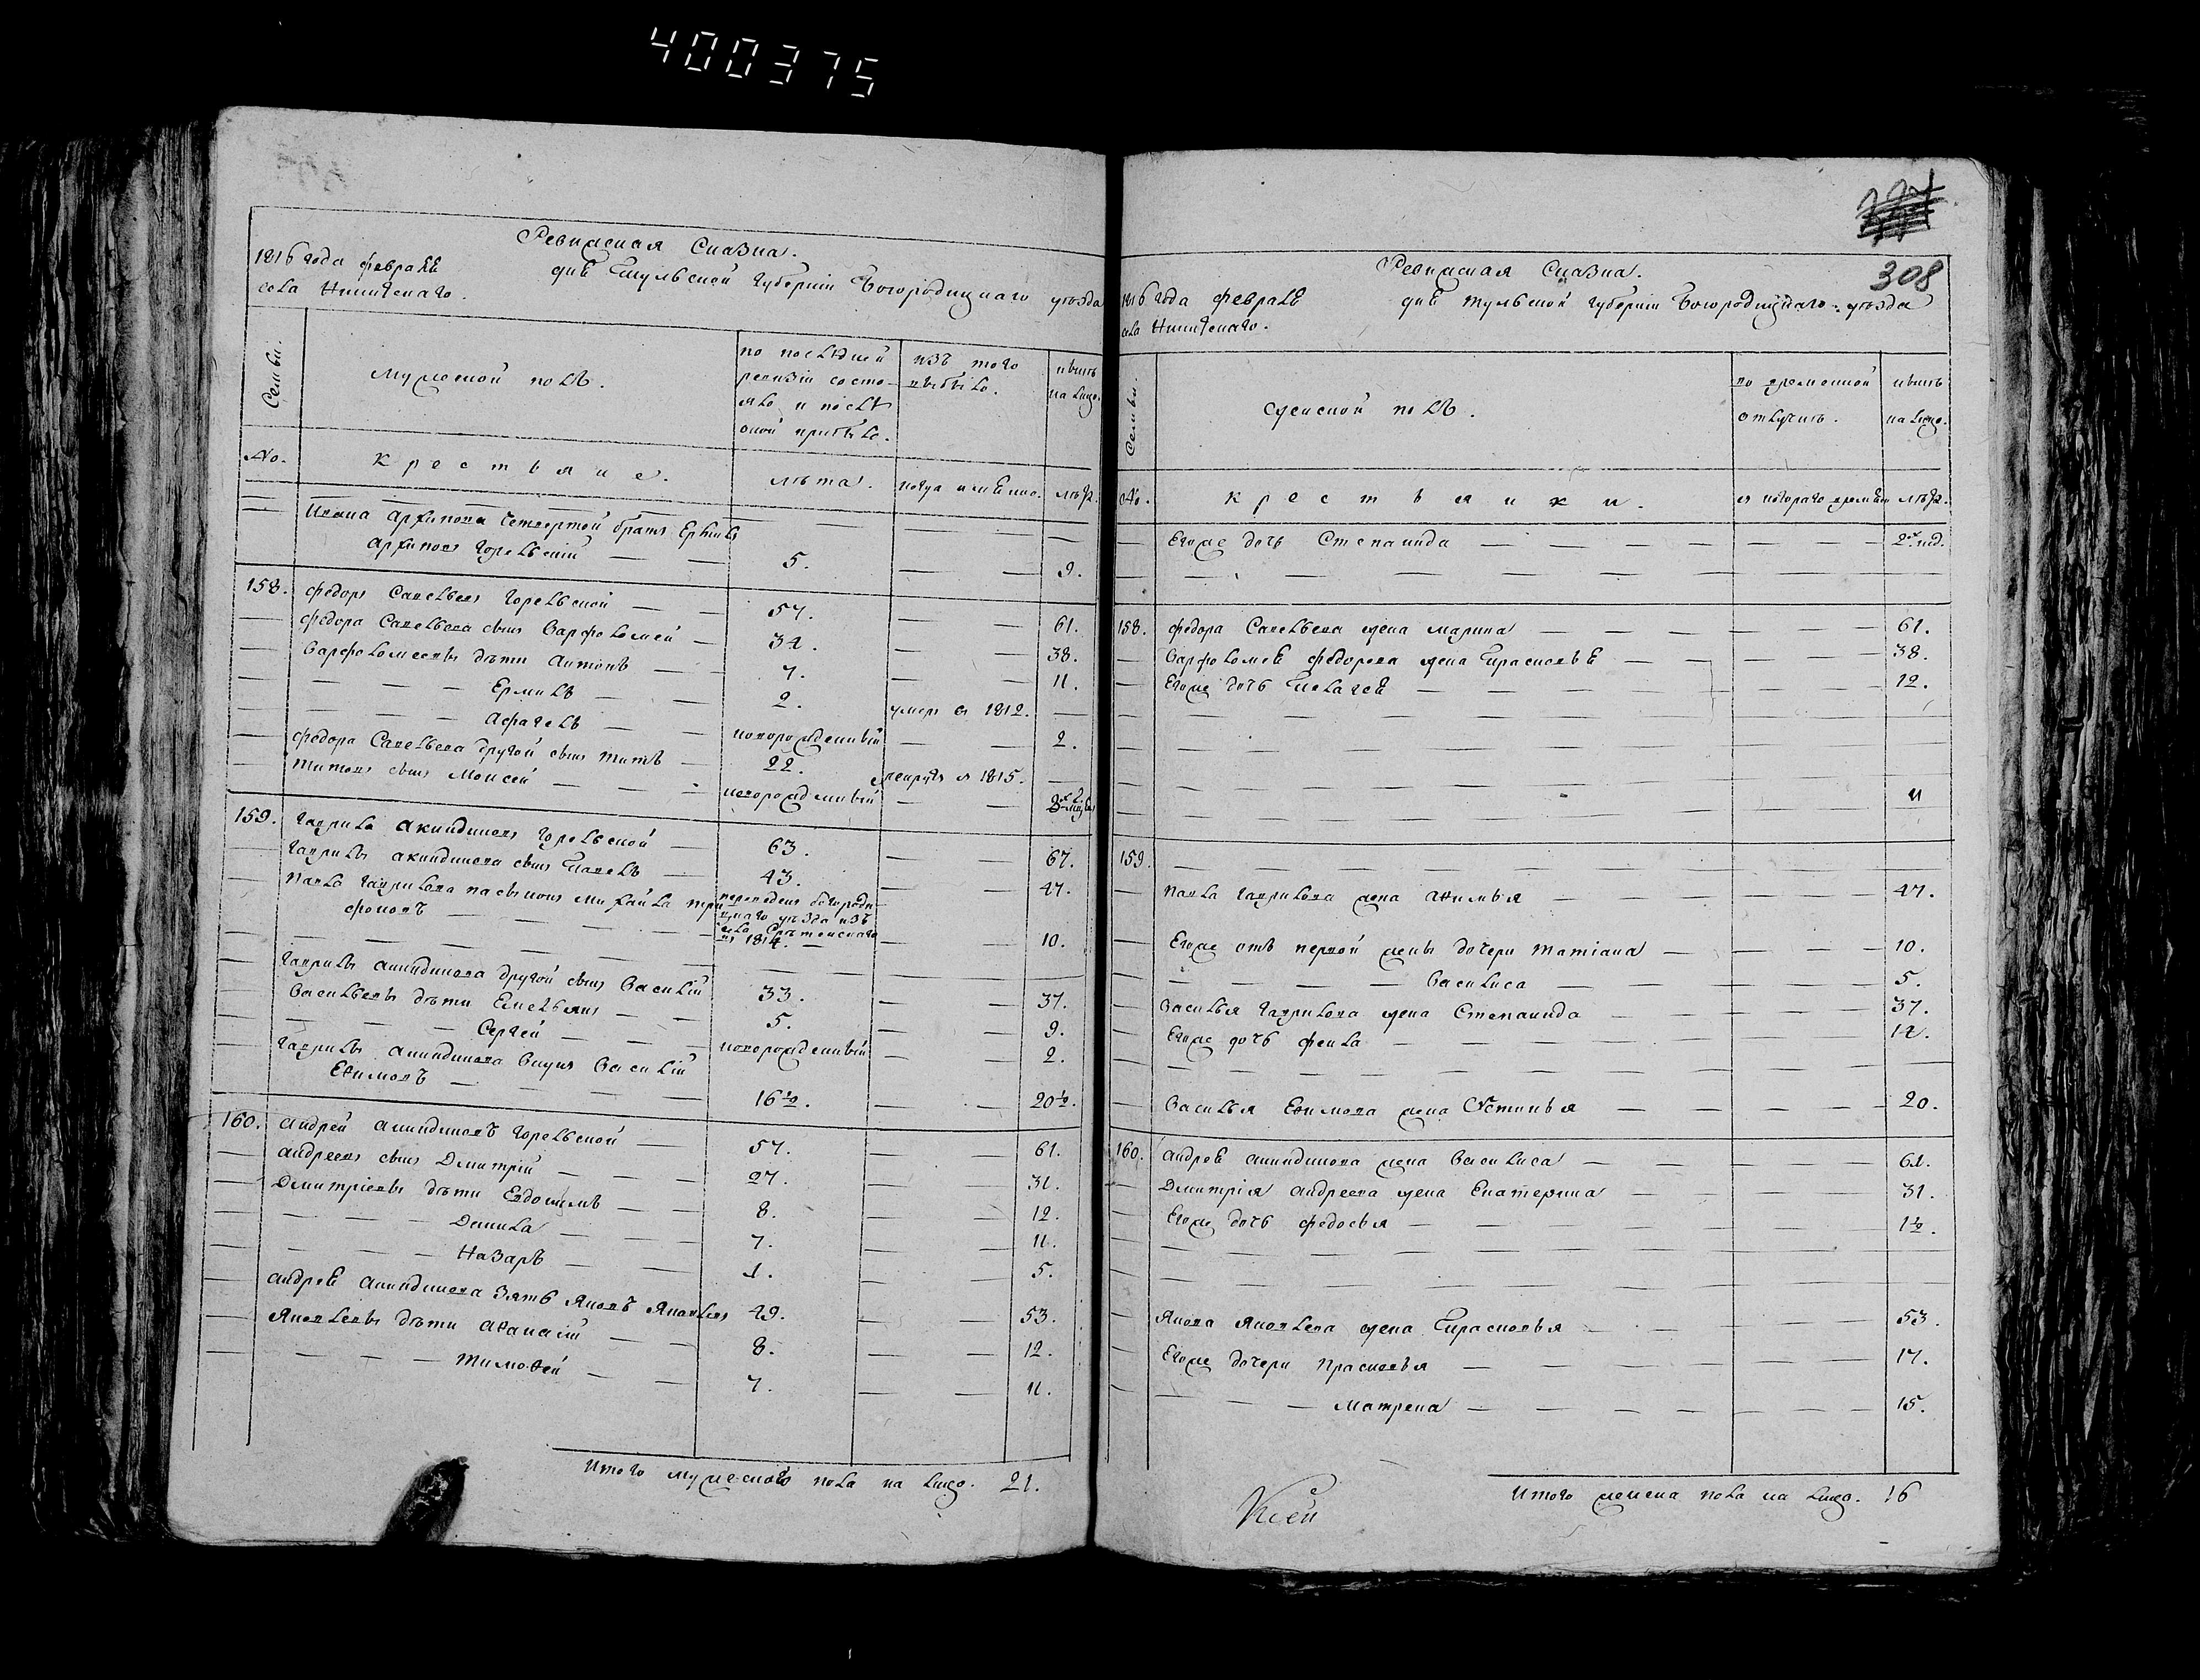 400375
Ревизская Сказка.
1816 года февраля дня Тульской губернии Богородицкаго уезда
села Никитскаго.
Семьи.
Мужеской полъ.
по последней
ревизии состо-
яло и после
оной прибыло.
изъ того
выбыло.
ныне
на лицо.
№.
Крестьяне.
лета.
когда именно.
лета.
Ивана Архипова четвертой братъ
Архиповъ Горельский — — 5. — — 9.
158. Федоръ Савельевъ Горельской — — 57. — — 61.
Федора Савельева сынъ Варфоломей — 34. — — 38.
Варфоломеевы дети Антонъ — — 7. — — 11.
— — — Ермилъ — — 2. умеръ въ 1812. —
— — — — — новорожденный — — 2.
Федора Савельева другой сынъ Титъ — 22. рекрутъ в 1815. —
Титовъ сынъ Моисей — — — новорожденный — —
159. Гаврила Акиндиновъ Горельской — 63. — — 67.
Гаврилы Акиндинова сынъ Павелъ — 43. — — 47.
Павла Гаврилова пасынокъ Михайла Три-
фоновъ — — — —
переведенъ Богороди-
цкаго уезда изъ
села Сретенскаго
въ 1814. — — — 10.
Гаврилы Акиндинова другой сынъ Василий 33. — — 37.
Васильевы дети Емельянъ — — 5. — — 9.
— — — Сергей — — — новорожденный — — 2.
Гаврилы Акиндинова внукъ Василий
Ефимовъ — — — — 16½. — — 20½.
160. Андрей Акиндиновъ Горельской — 57. — — 61.
Андреевъ сынъ Дмитрий — — 27. — — 31.
Дмитриевы дети Евдокимъ — — 8. — — 12.
— — — Данила — — 7. — — 11.
— — — Назаръ — — 1. — — 5.
Андрея Акиндинова зять Яковъ Яковлевъ 49. — — 53.
Яковлевы дети Афанасий — — 8. — — 12.
— — — Тимофей — — 7. — — 11.
Итого мужескаго пола на лицо. 21.
308
Ревизская Сказка.
1816 года февраля дня Тульской губернии Богородицкаго уезда
села Никитскаго.
Семьи.
Женской полъ.
во временной
отлучке.
ныне
на лицо.
№.
Крестьянки.
съ котораго времени
лета.
Егоже дочь Степанида — — — — — — — 2хъ нед.
158. Федора Савельева жена Марина — — — — — — 61.
Варфоломея Федорова жена Парасковья — — — — — 38.
Егоже дочь Пелагея — — — — — — — 12.
159. — — — — — — — — —
Павла Гаврилова жена Афимья — — — — — 47.
Егоже отъ первой жены дочери Татиана — — — — 10.
— — — — Василиса — — — — — 5.
Василья Гаврилова жена Степанида — — — — — — 37.
Егоже дочь Фекла — — — — — — — 14.
Василья Ефимова жена Устинья — — — — — — 20.
160. Андрея Акиндинова жена Василиса — — — — — — 61.
Дмитрия Андреева жена Екатерина — — — — — 31.
Егоже дочь Федосья — — — — — — — 1½.
Якова Яковлева жена Парасковья — — — — — — 53.
Егоже дочери Прасковья — — — — — — 17.
— — — Матрена — — — — — — — 15.
Итого женска пола на лицо. 16